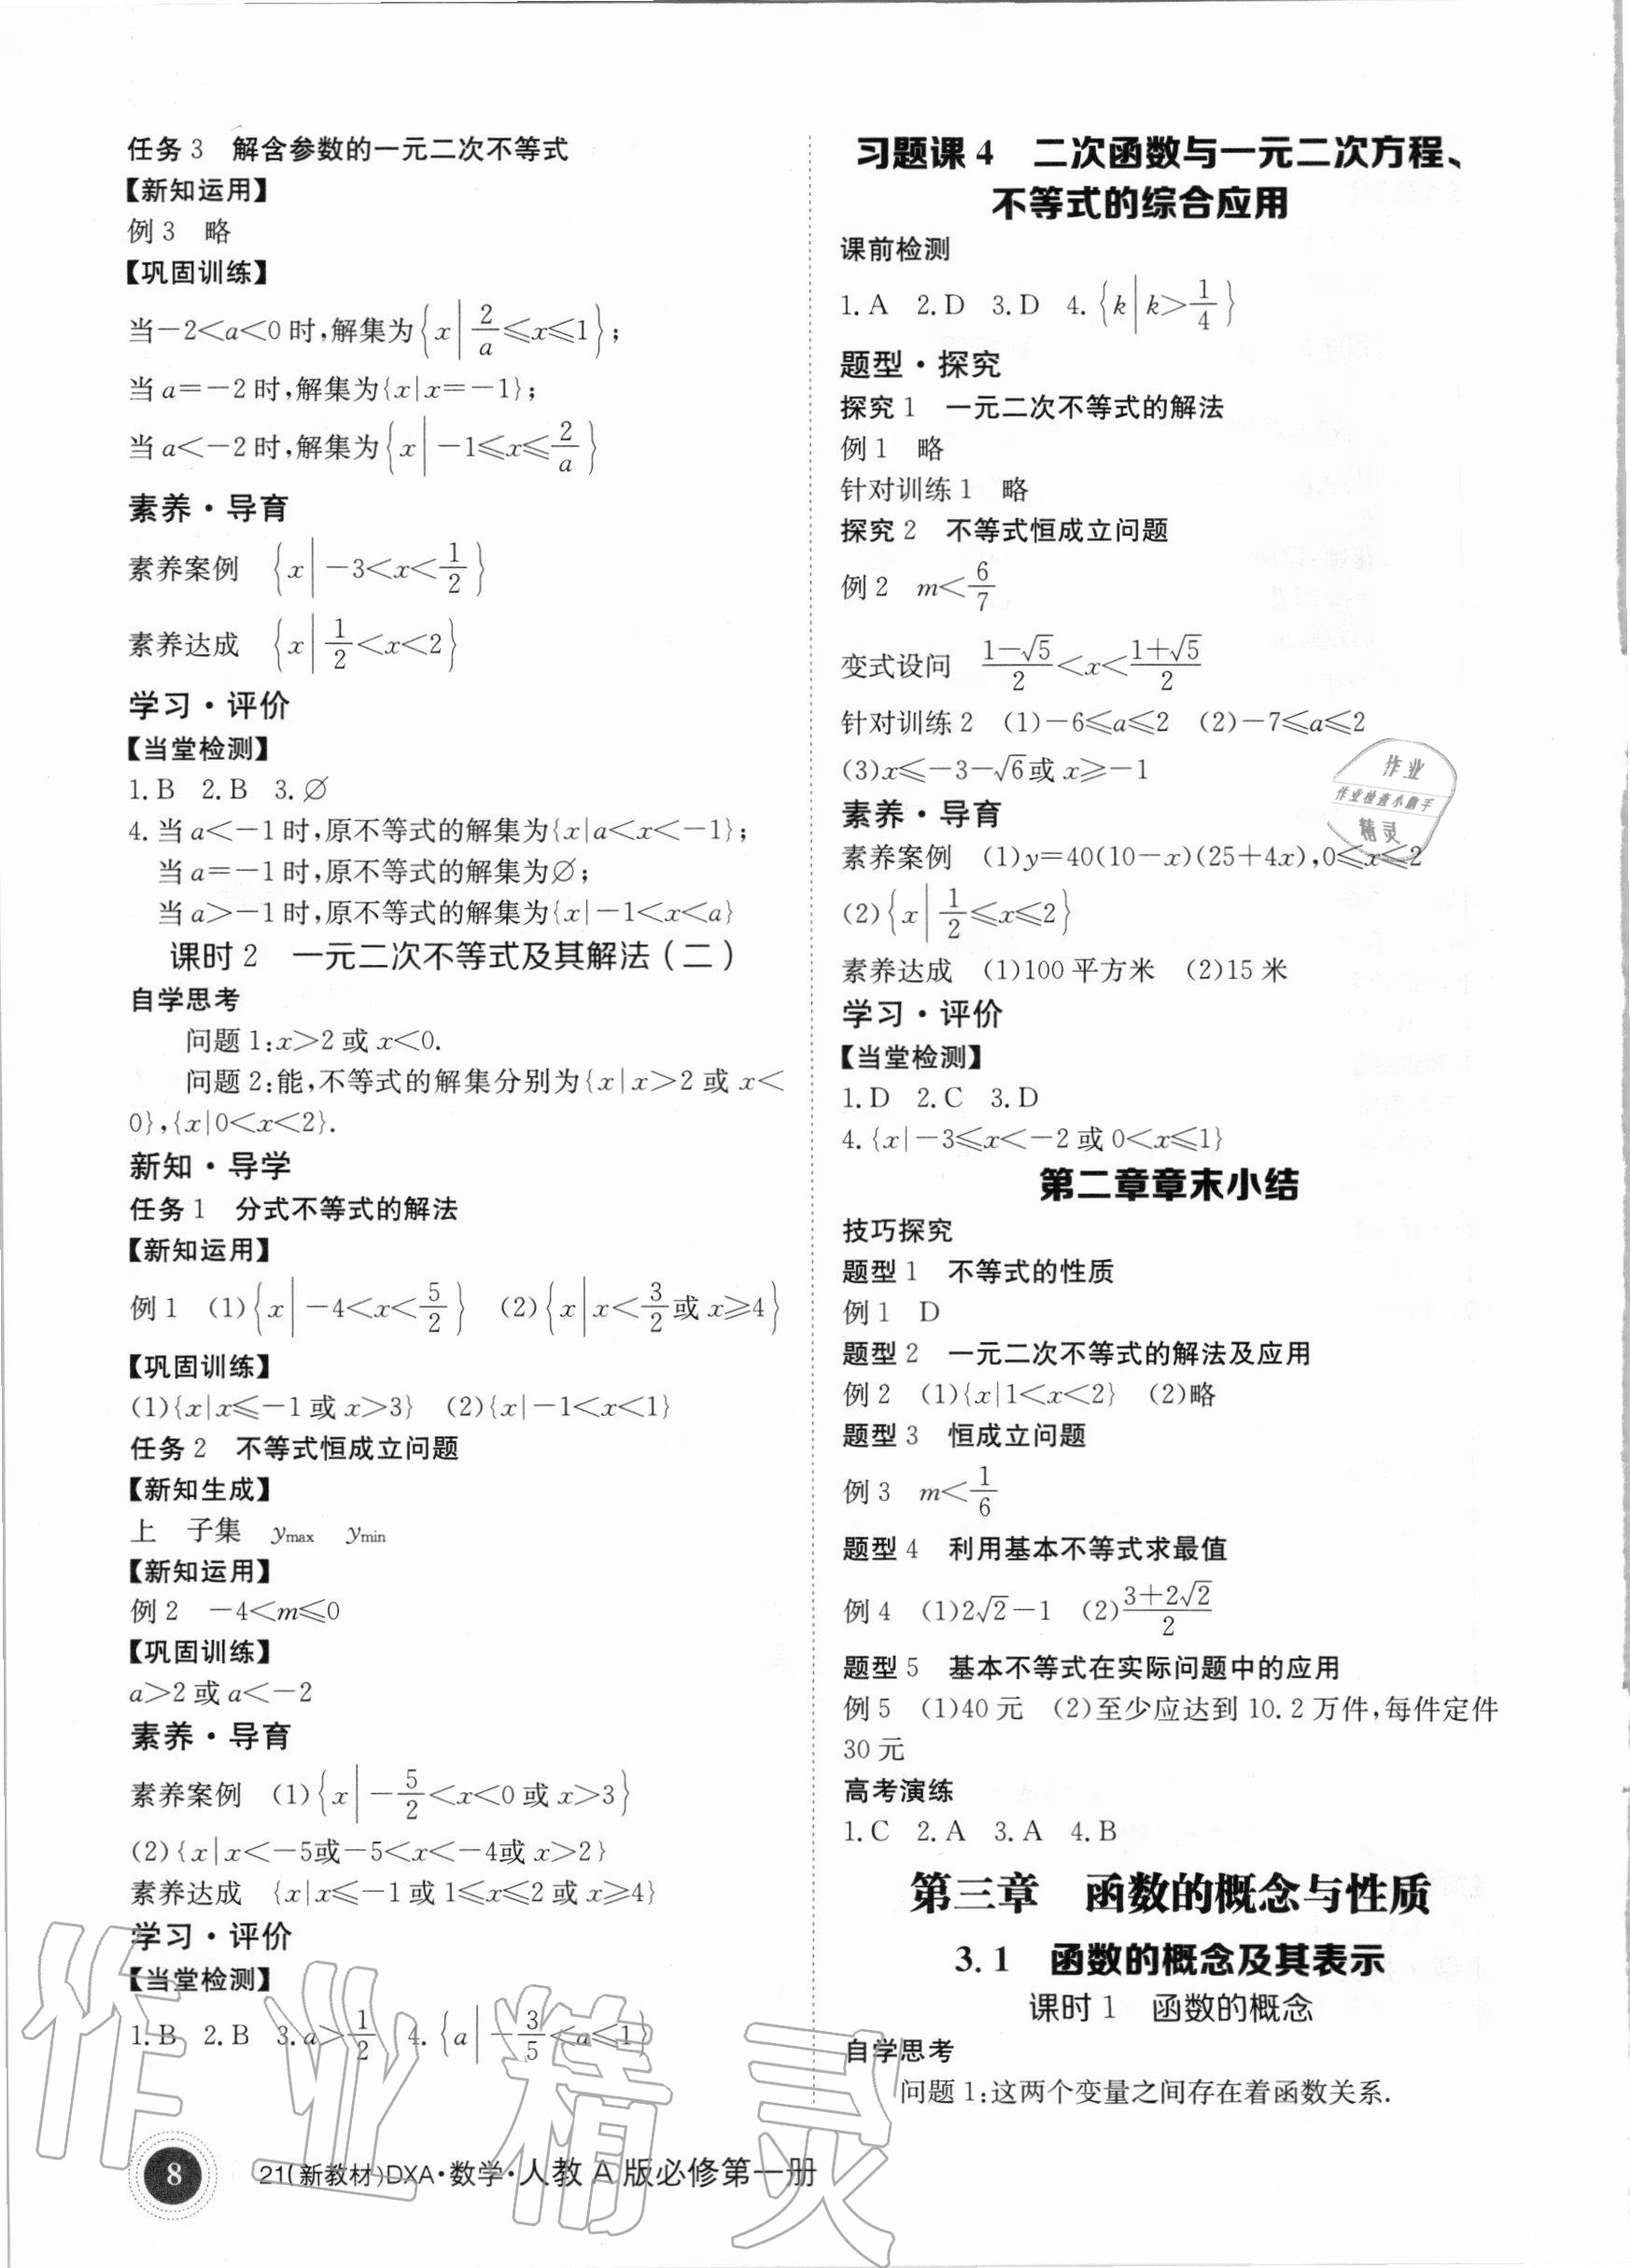 任务3　解含参数的一元二次不等式
【新知运用】
例3　略
【巩固训练】
当－2＜a＜0时,解集为{x|2/a≤x≤1};
当a＝－2时,解集为{x|x＝－1};
当a＜－2时,解集为{x|－1≤x≤2/a}
素养·导育
素养案例　{x|－3＜x＜1/2}
素养达成　{x|1/2＜x＜2}
学习·评价
【当堂检测】
1.B　2.B　3.∅
4.当a＜－1时,原不等式的解集为{x|a＜x＜－1};
当a＝－1时,原不等式的解集为∅;
当a＞－1时,原不等式的解集为{x|－1＜x＜a}
课时2　一元二次不等式及其解法(二)
自学思考
问题1:x＞2或x＜0.
问题2:能,不等式的解集分别为{x|x＞2或x＜
0},{x|0＜x＜2}.
新知·导学
任务1　分式不等式的解法
【新知运用】
例1　(1){x|－4＜x＜5/2}　(2){x|x＜3/2或x≥4}
【巩固训练】
(1){x|x≤－1或x＞3}　(2){x|－1＜x＜1}
任务2　不等式恒成立问题
【新知生成】
上　子集　ymax　ymin
【新知运用】
例2　－4＜m≤0
【巩固训练】
a＞2或a＜－2
素养·导育
素养案例　(1){x|－5/2＜x＜0或x＞3}
(2){x|x＜－5或－5＜x＜－4或x＞2}
素养达成　{x|x≤－1或1≤x≤2或x≥4}
学习·评价
【当堂检测】
1.B　2.B　3.a＞1/2　4.{a|－3/5＜a≤1}
习题课4　二次函数与一元二次方程、
不等式的综合应用
课前检测
1.A　2.D　3.D　4.{k|k＞1/4}
题型·探究
探究1　一元二次不等式的解法
例1　略
针对训练1　略
探究2　不等式恒成立问题
例2　m＜6/7
变式设问　(1－√5)/2＜x＜(1＋√5)/2
针对训练2　(1)－6≤a≤2　(2)－7≤a≤2
(3)x≤－3－√6或x≥－1
素养·导育
素养案例　(1)y＝40(10－x)(25＋4x),0≤x≤2
(2){x|1/2≤x≤2}
素养达成　(1)100平方米　(2)15米
学习·评价
【当堂检测】
1.D　2.C　3.D
4.{x|－3≤x＜－2或0＜x≤1}
第二章章末小结
技巧探究
题型1　不等式的性质
例1　D
题型2　一元二次不等式的解法及应用
例2　(1){x|1＜x＜2}　(2)略
题型3　恒成立问题
例3　m＜1/6
题型4　利用基本不等式求最值
例4　(1)2√2－1　(2)(3＋2√2)/2
题型5　基本不等式在实际问题中的应用
例5　(1)40元　(2)至少应达到10.2万件,每件定件
30元
高考演练
1.C　2.A　3.A　4.B
第三章　函数的概念与性质
3.1　函数的概念及其表示
课时1　函数的概念
自学思考
问题1:这两个变量之间存在着函数关系.
作业
作业检查小助手
精灵
作业精灵
8　21(新教材)DXA·数学·人教A版必修第一册